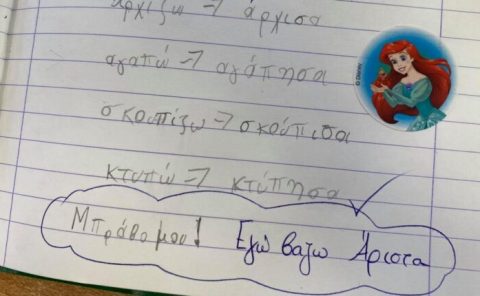 αρχίζω → άρχισα
αγαπώ → αγάπησα
σκουπίζω → σκούπισα
κτυπώ → κτύπησα
Μπράβο μου! Εγώ βάζω Άριστα
© Disney